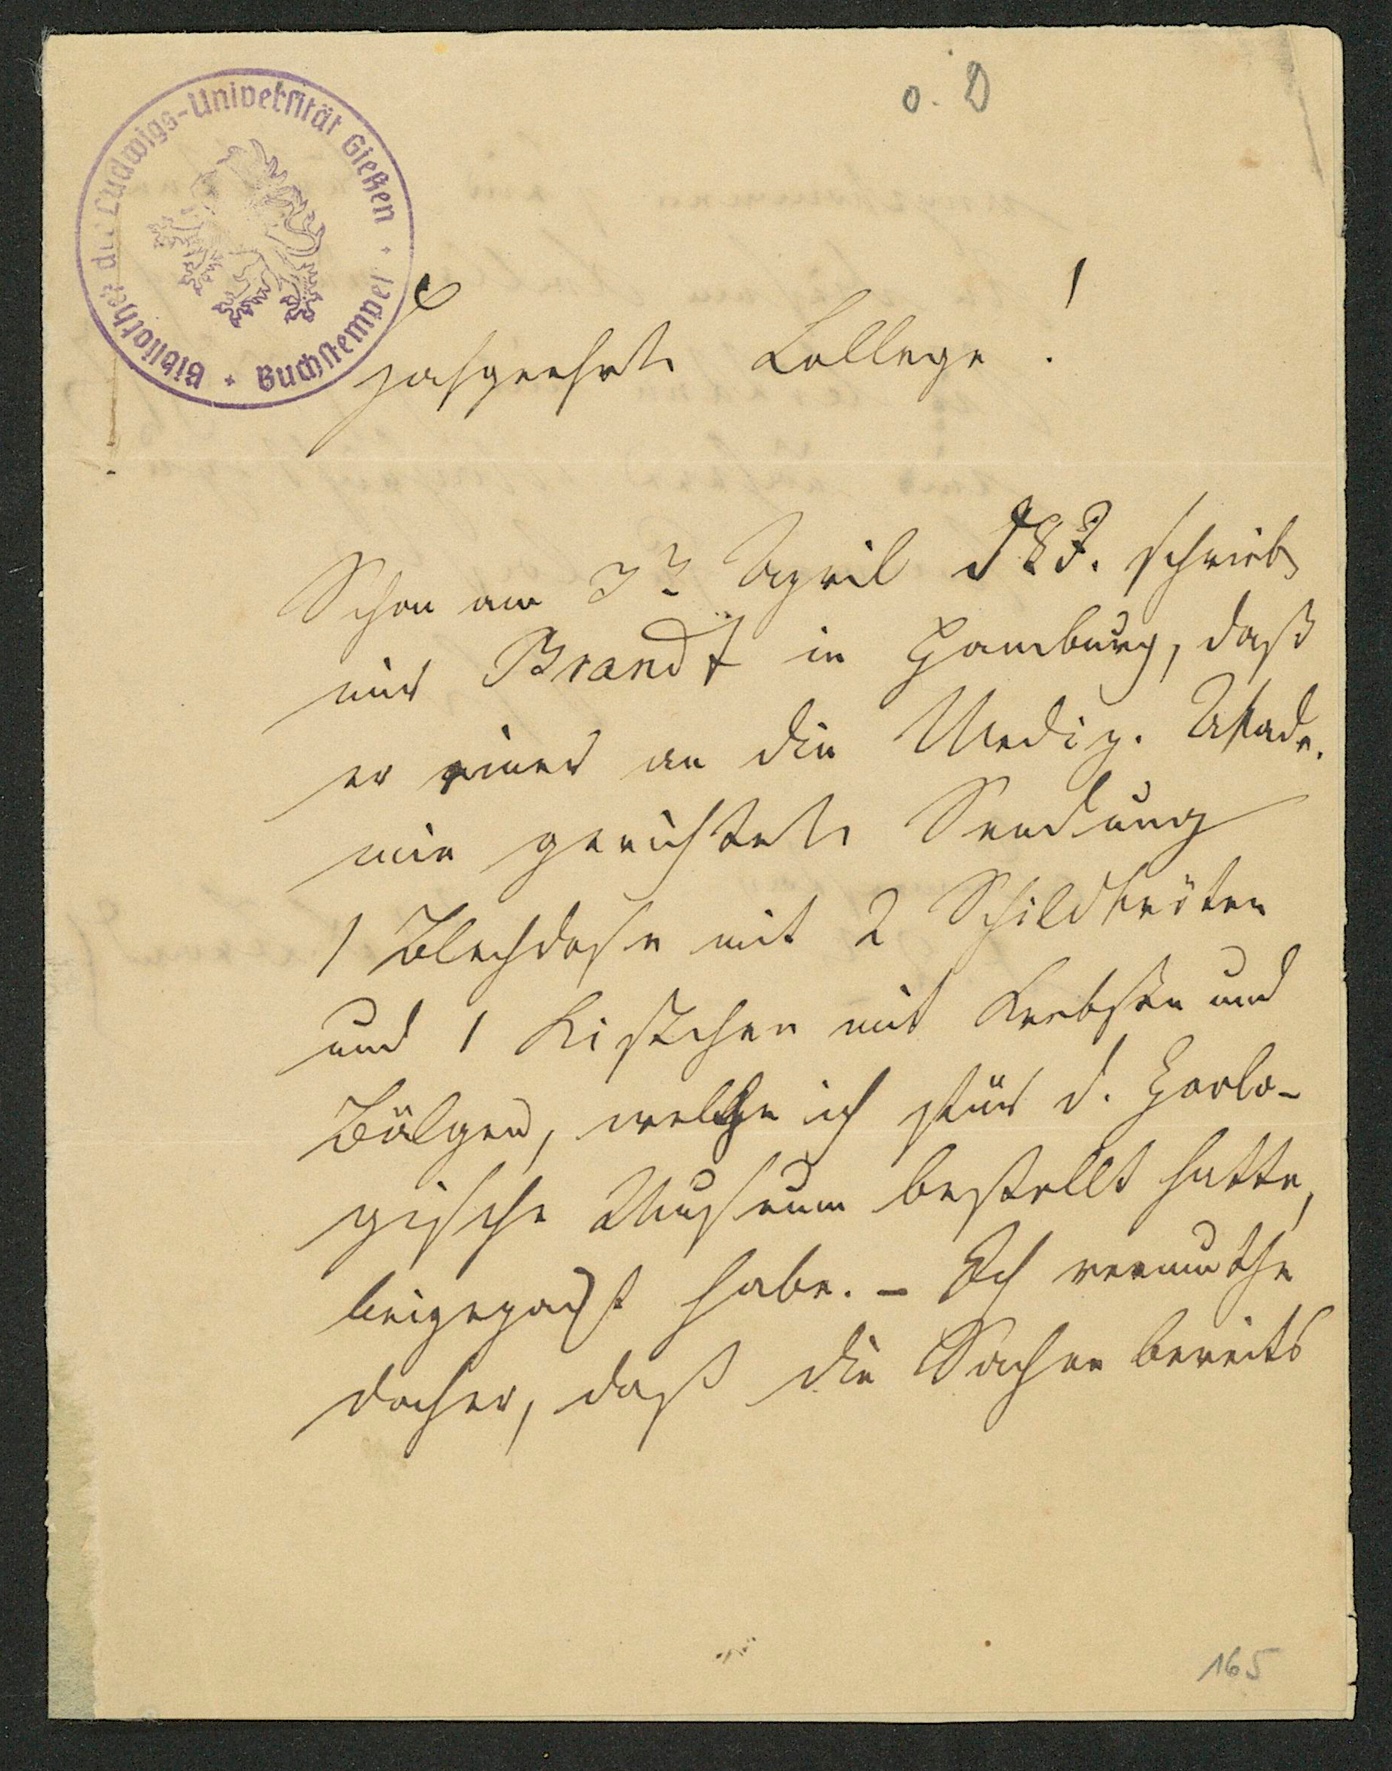 o. D
Bibliothek der Ludwigs-Universität Gießen
Buchstempel
Hochgeehrter College!
Schon am April d. J. schrieb
mir Brandt in Hamburg, daß
er einer an die Mediz. Akade-
mie gerichteten Sendung
1 Blechdose mit 2 Schildkröten
und 1 Kistchen mit Krebsen und
Bälgen, welche ich für d. Zoolo-
gische Museum bestellt hatte,
beigepackt habe. – Ich vermuthe
daher, daß die Sachen bereits
165